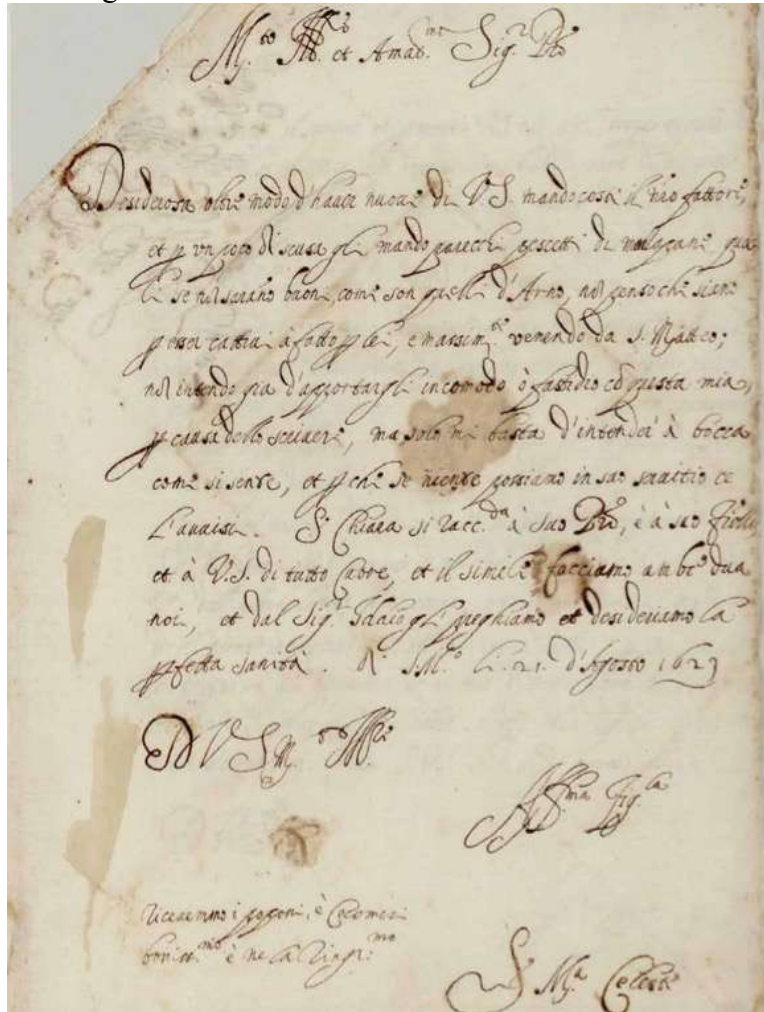 M.to Ill.re et Amat.mo Sig.r P.re
Desiderosa oltre modo d'haver nuove di V. S. mando costì il nro fattore,
et p un poco di scusa gli mando parecchi pescetti di marzapane qua
li se nō sarano buoni, come son quelli d'Arno, nō penso che siano
p esser cattivi à fatto p lei, e massim.te venendo da S. Matteo;
nō intendo già d'apportargli incomodo ò fastidio cō questa mia,
p causa dello scivere, ma solo mi basta d'intender à bocca
come si sente, et p che se niente possiamo in suo servitio ce
l'avvisi. S.r Chiara si racc.da à suo P.re, è à suo
et à V.S. di tutto Cuore, et il simile facciamo anbe dua
noi, et dal Sig.r Iddio gli preghiamo et desideriamo la
pfetta sanità. Di S. M.o li. 21. d'Agosto 1623
D V S M.to Ill.re
Aff.ma Fig.la
Ricevemmo i poponi, è Cocomeri
boniss.mi è ne la ringr.mo
S M.a Celeste